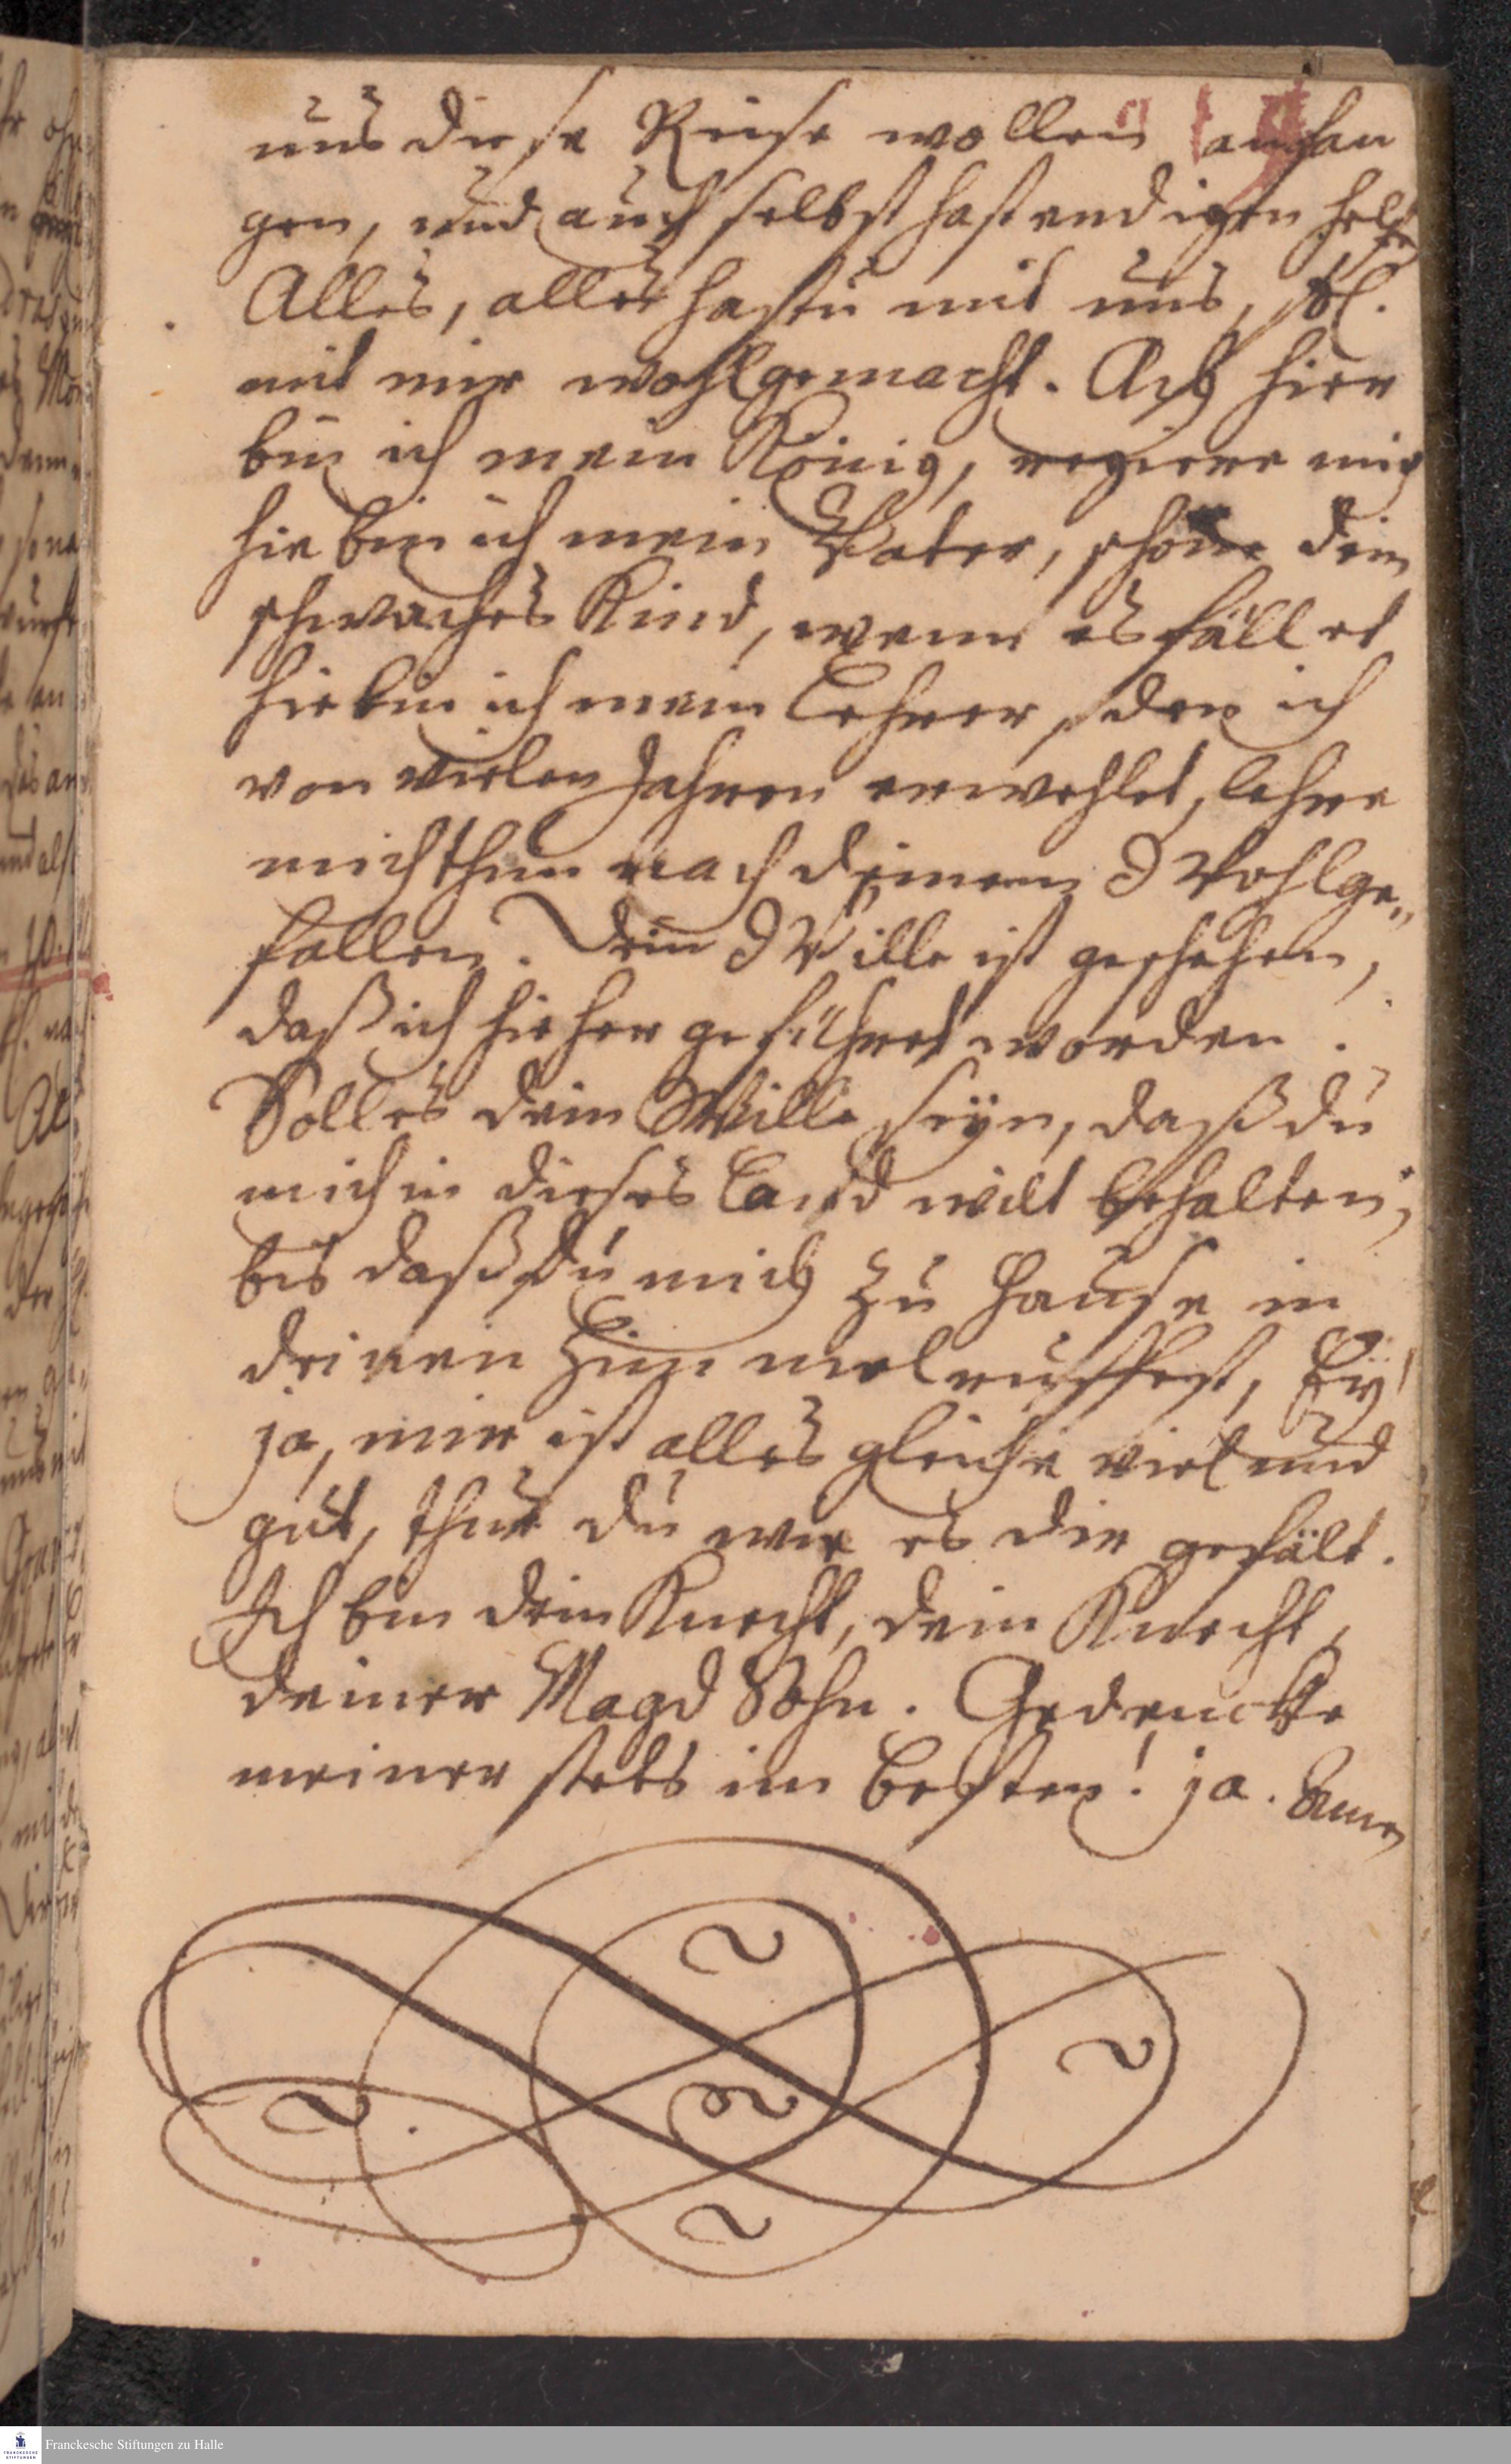 uns diese Reise wollen anfan
gen, und auch selbst hast endigen helf
Alles, alles hastu mit uns,
mit mir wohlgemacht. Ach hier
bin ich mein König, regiere mich
hie bin ich mein Vater, schone dein
schwaches Kind, wenn es fället
hie bin ich mein Lehrer, den ich
von vielen Jahren erwehlet, lehre
mich thun nach deinem Wohlge„
fallen. Dein Wille ist geschehen,
daß ich hieher geführet worden.
Soll es dein Wille seÿn, daß du
mich in dieses Land wilt behalten,
bis daß du mich zu Hause in
deinen Himmel ruffest, Eÿ!
ja, mir ist alles gleiche viel und
gut, thue du wie es dir gefält.
Ich bin dein Knecht, dein Knecht,
deiner Magd Sohn. Gedencke
meiner stets im besten! ja. Amen
Franckesche Stiftungen zu Halle